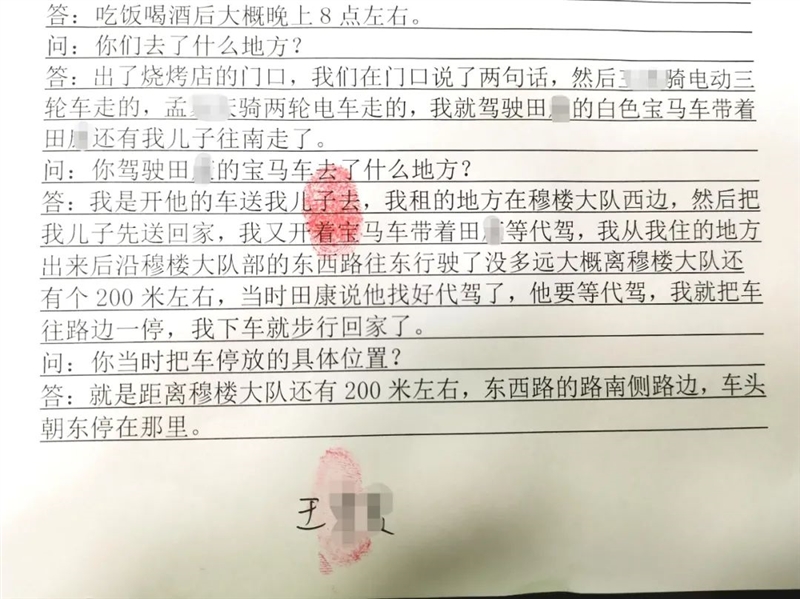 答：吃饭喝酒后大概晚上 8 点左右。
问：你们去了什么地方？
答：出了烧烤店的门口，我们在门口说了两句话，然后 骑电动三
轮车走的，孟 骑两轮电车走的，我就驾驶田 的白色宝马车带着
田 还有我儿子往南走了。
问：你驾驶田 的宝马车去了什么地方？
答：我是开他的车送我儿子去，我租的地方在穆楼大队西边，然后把
我儿子先送回家，我又开着宝马车带着田 等代驾，我从我住的地方
出来后沿穆楼大队部的东西路往东行驶了没多远大概离穆楼大队还
有个 200 米左右，当时田康说他找好代驾了，他要等代驾，我就把车
往路边一停，我下车就步行回家了。
问：你当时把车停放的具体位置？
答：就是距离穆楼大队还有 200 米左右，东西路的路南侧路边，车头
朝东停在那里。
王